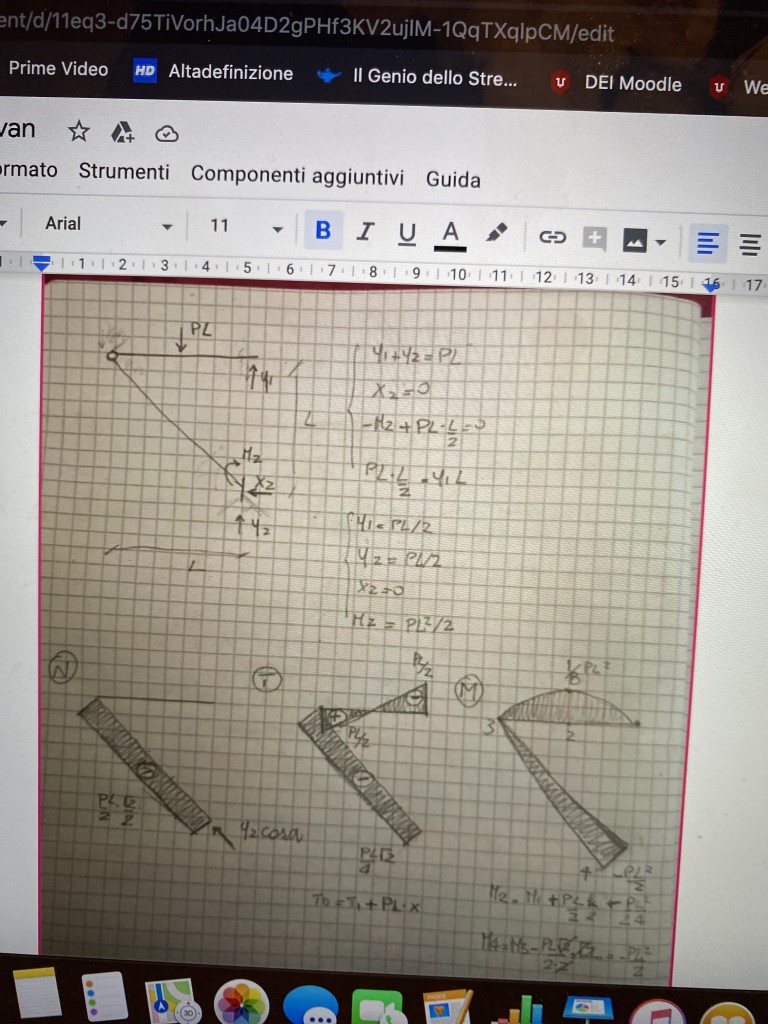 ent/d/11eq3-d75TiVorhJa04D2gPHf3KV2ujlM-1QqTXqlpCM/edit
Prime Video HD Altadefinizione Il Genio dello Stre... DEI Moodle We
van
ormato Strumenti Componenti aggiuntivi Guida
Arial 11 B I U A
1 2 3 4 5 6 7 8 9 10 11 12 13 14 15 16 17
PL
Y1
L
M2
X2
Y2
L
Y1+Y2=PL
X2=0
-M2+PL·L/2=0
PL·L/2=Y1L
Y1=PL/2
Y2=PL/2
X2=0
M2=PL²/2
N
-
PL/2 √2/2
Y2cosα
T
PL/2
+
-
PL/2
-
PL√2/4
T0=T1+PL·x
M
1/8PL²
3
2
4
-PL²/2